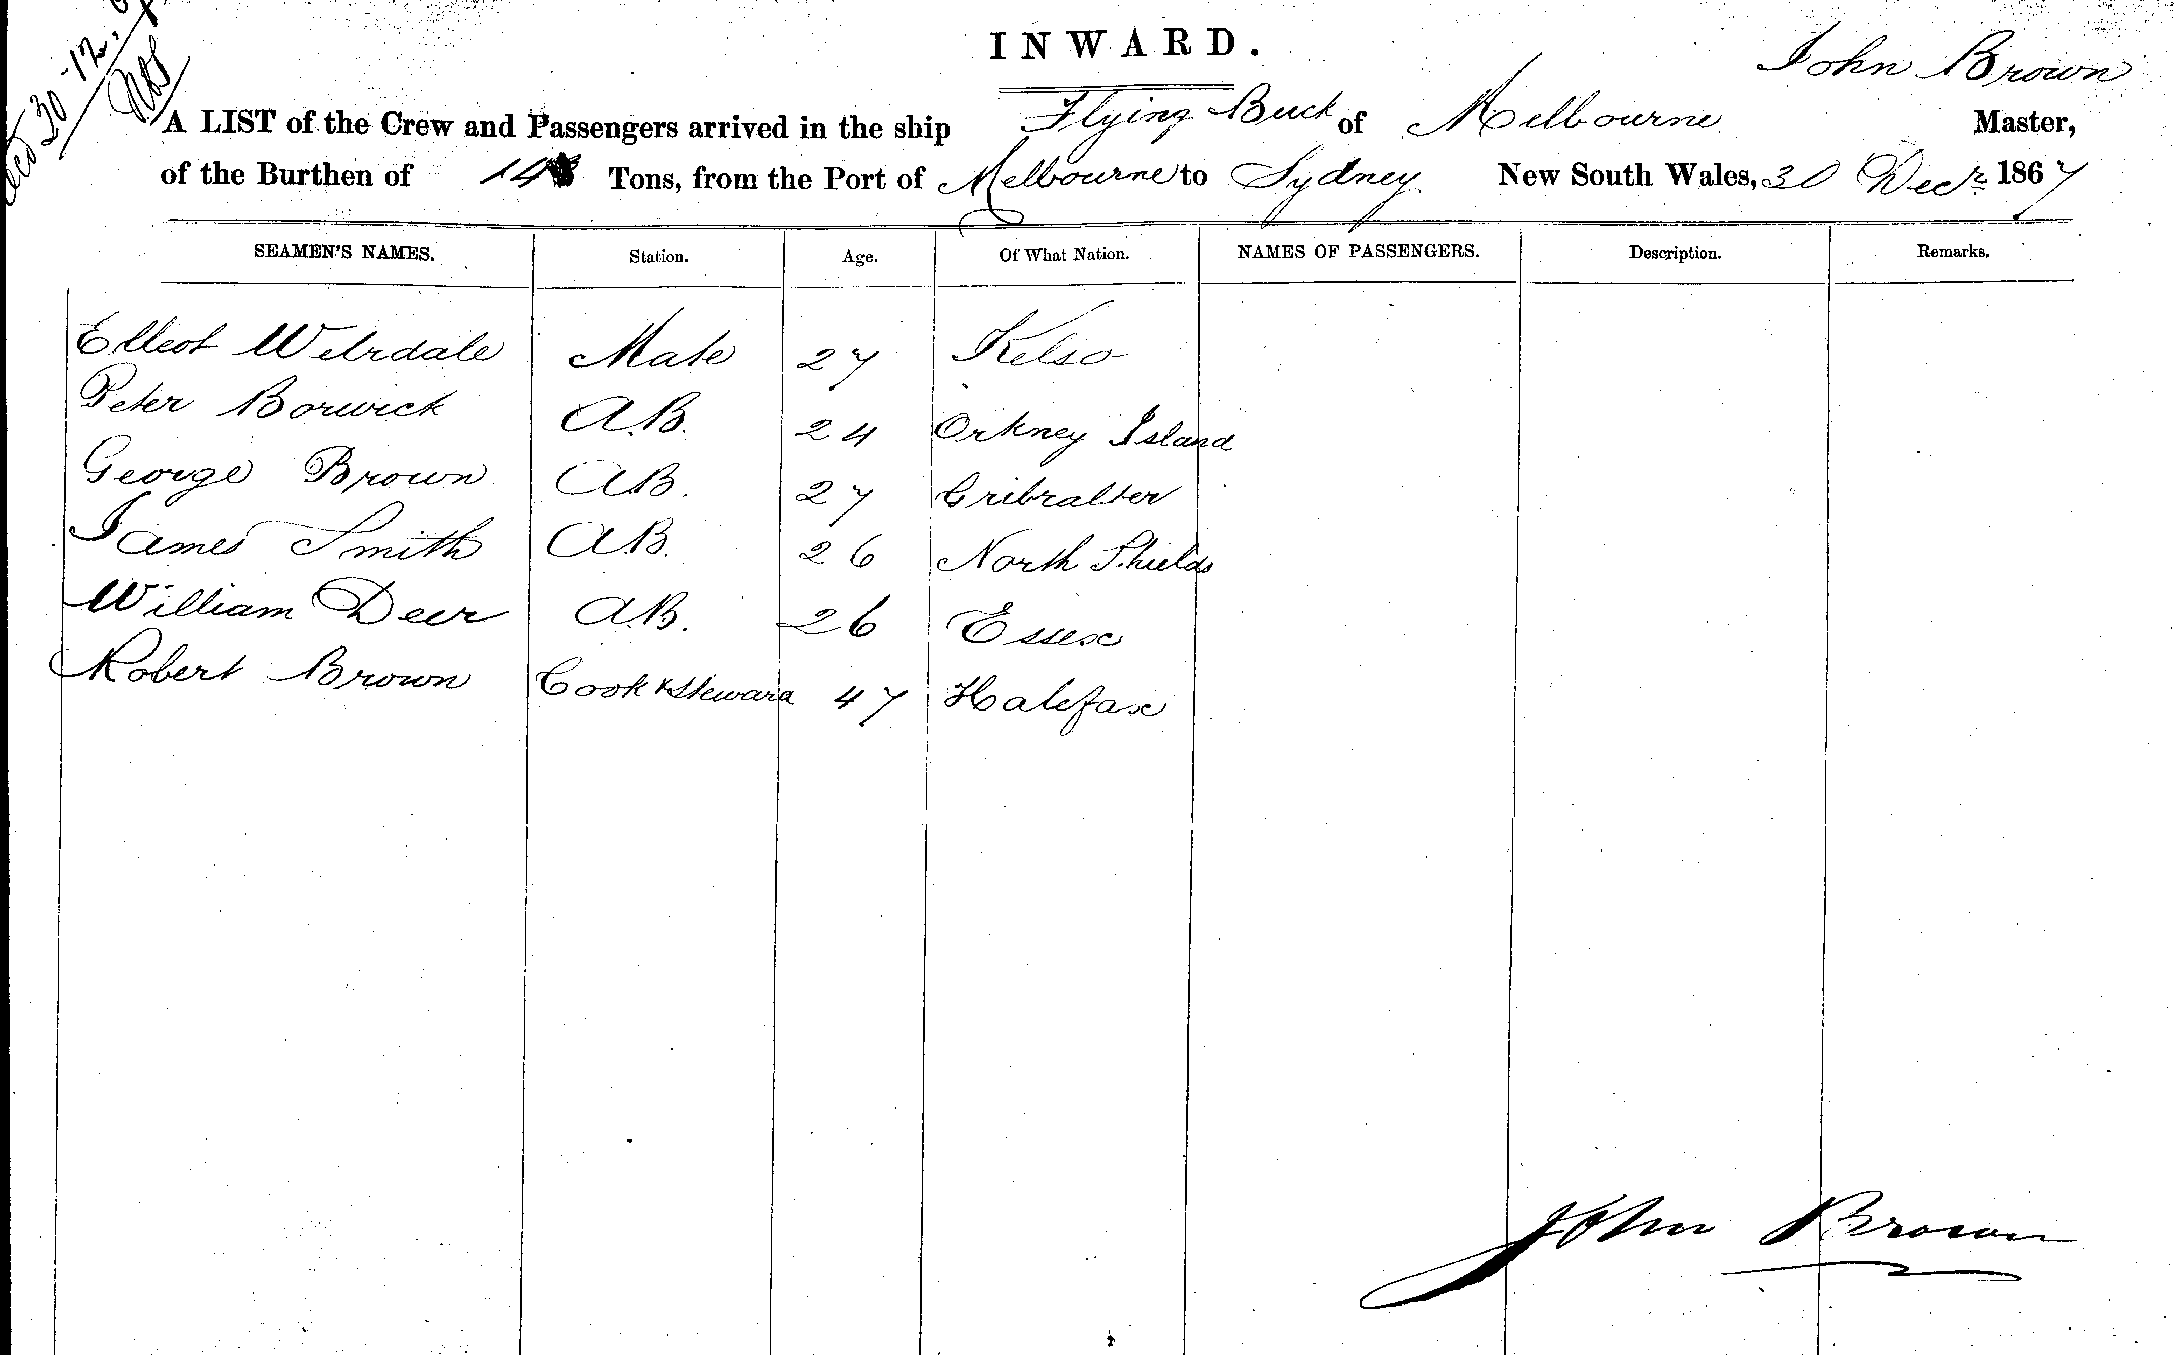 30-12.
INWARD.
John Brown
A LIST of the Crew and Passengers arrived in the ship Flying Buck of Melbourne Master,
of the Burthen of 14 Tons, from the Port of Melbourne to Sydney New South Wales, 30 Decr 1867
SEAMEN'S NAMES. Station. Age. Of What Nation. NAMES OF PASSENGERS. Description. Remarks.
Elleot Mate 27 Kelso
Peter Borwick A.B. 24 Orkney Island
George Brown AB. 27 Gribralter
James Smith AB. 26 North Shields
William Deer AB. 26 Essex
Robert Brown Cook & Steward 47 Halefax
John Brown